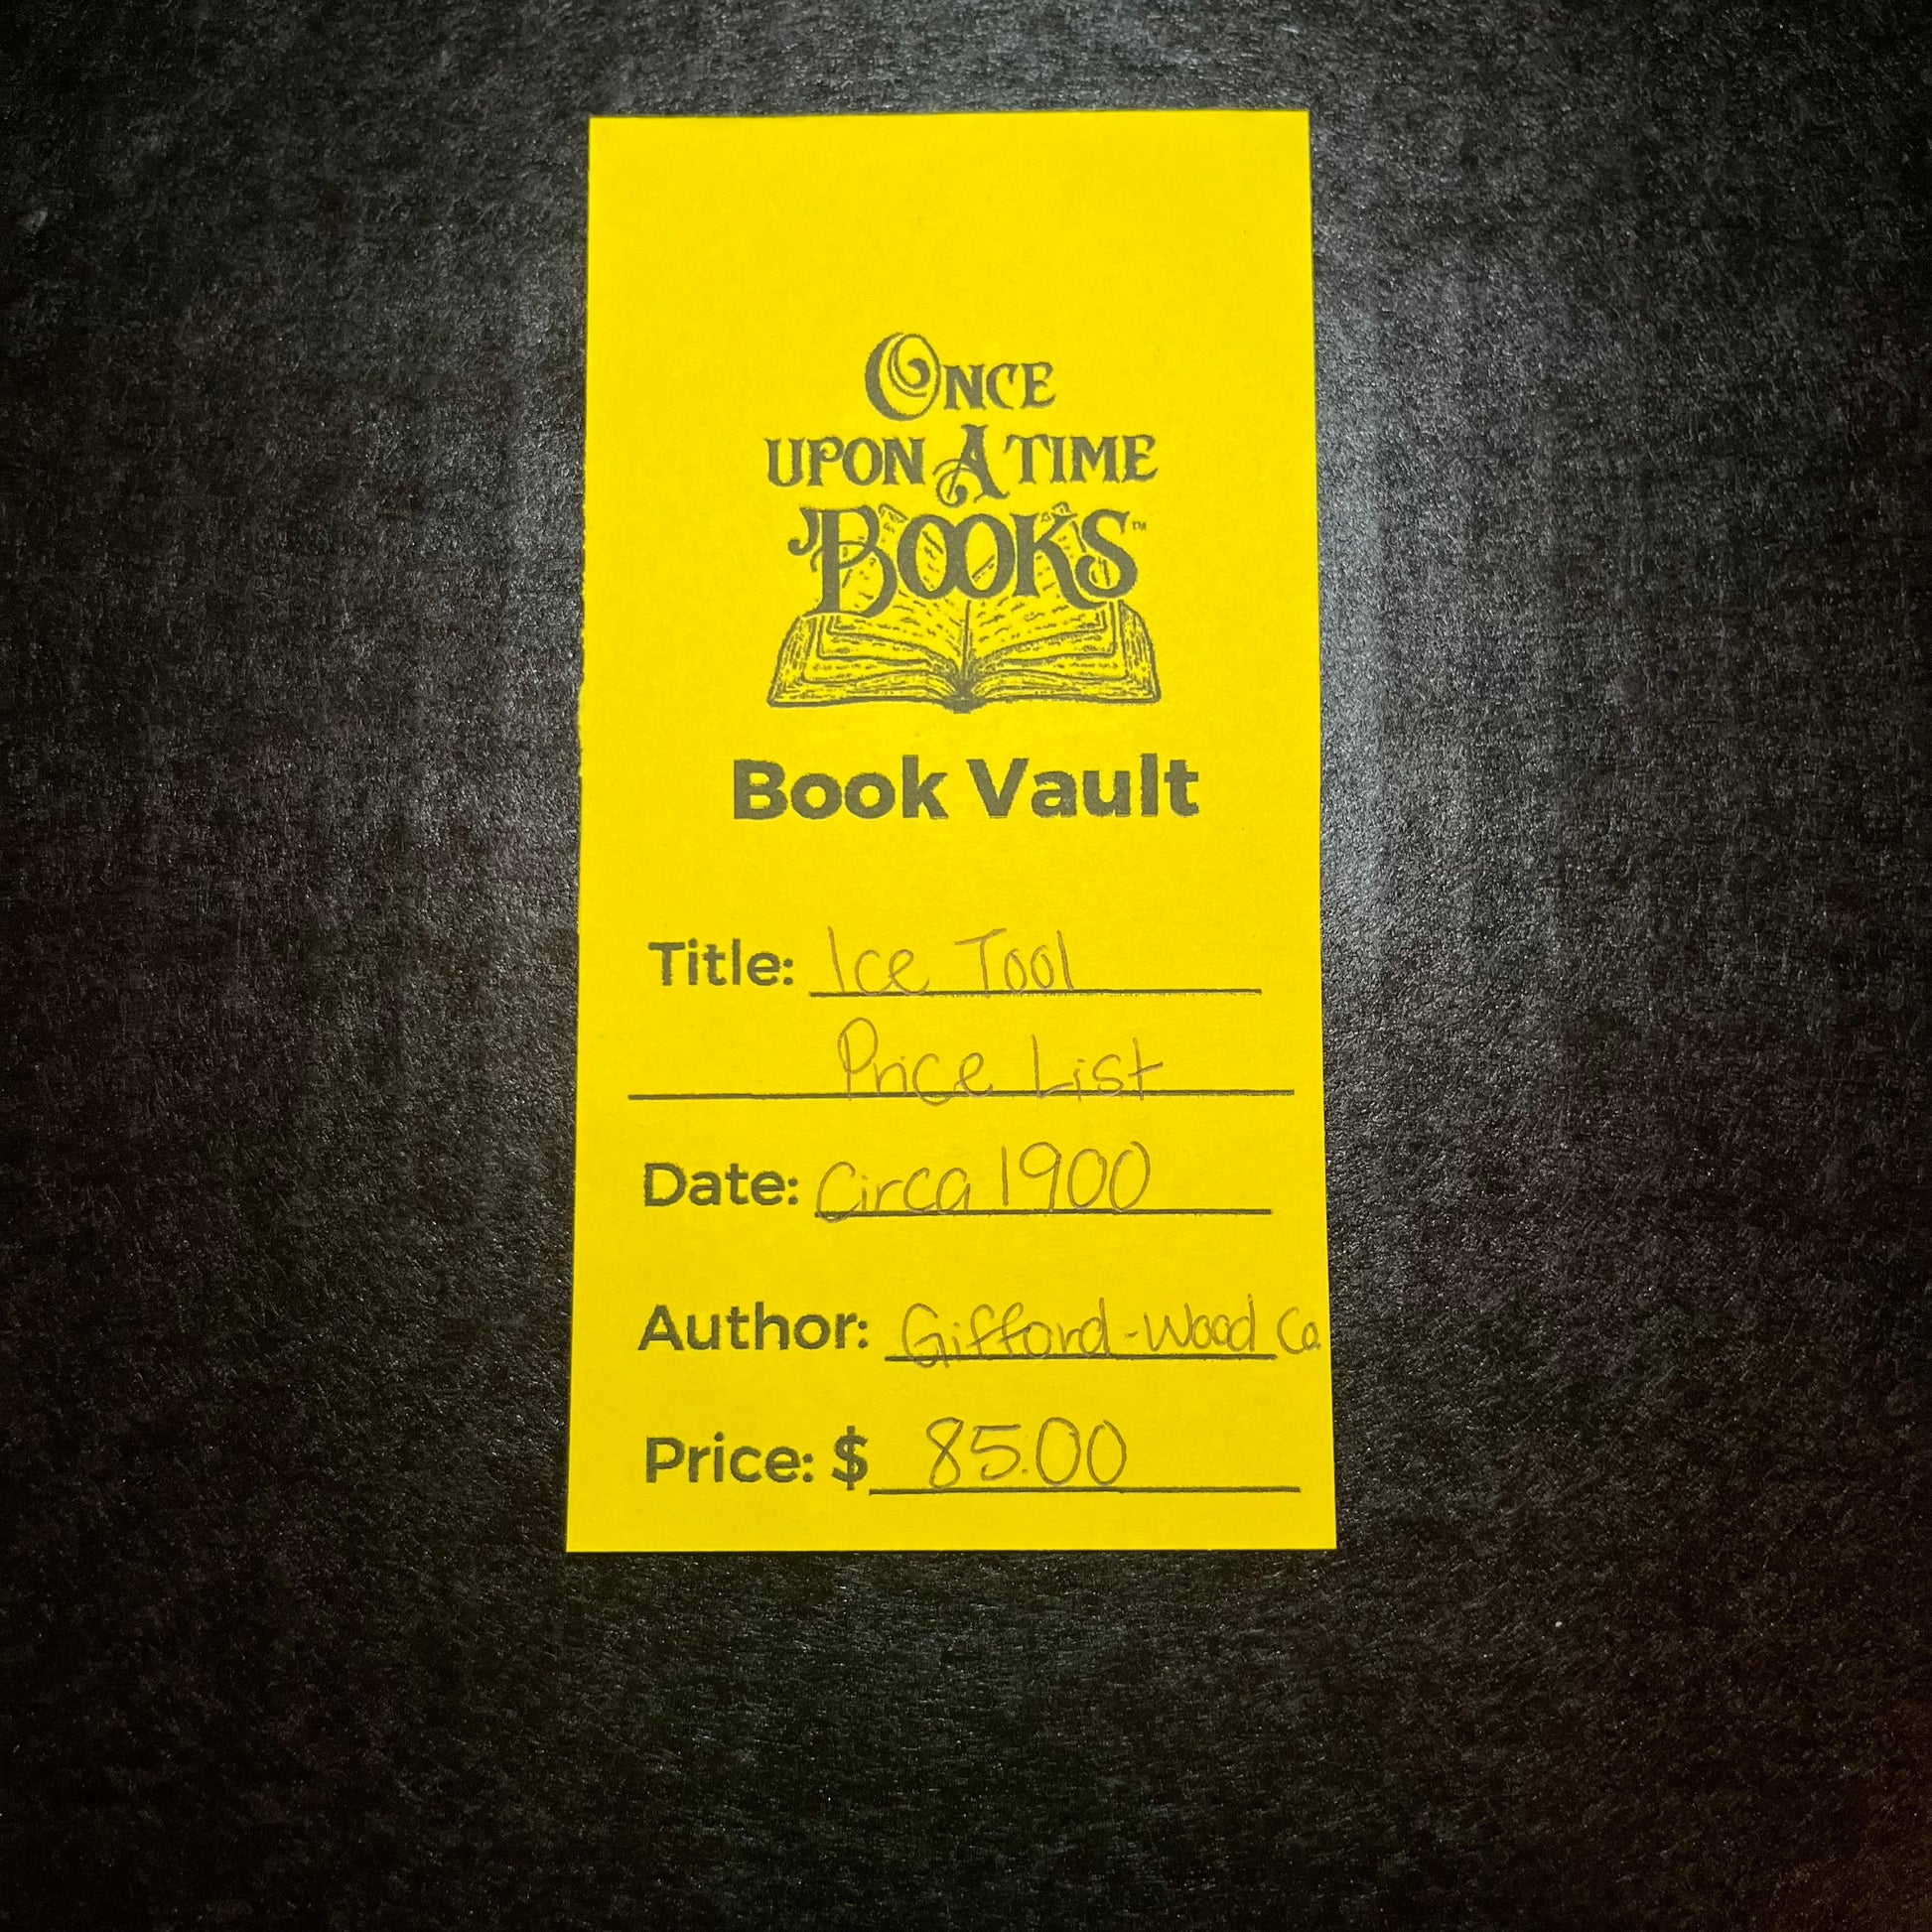 ONCE
UPON A TIME
BOOKS™
Book Vault
Title: Ice Tool
Price List
Date: Circa 1900
Author: Gifford-Wood Co.
Price: $ 85.00